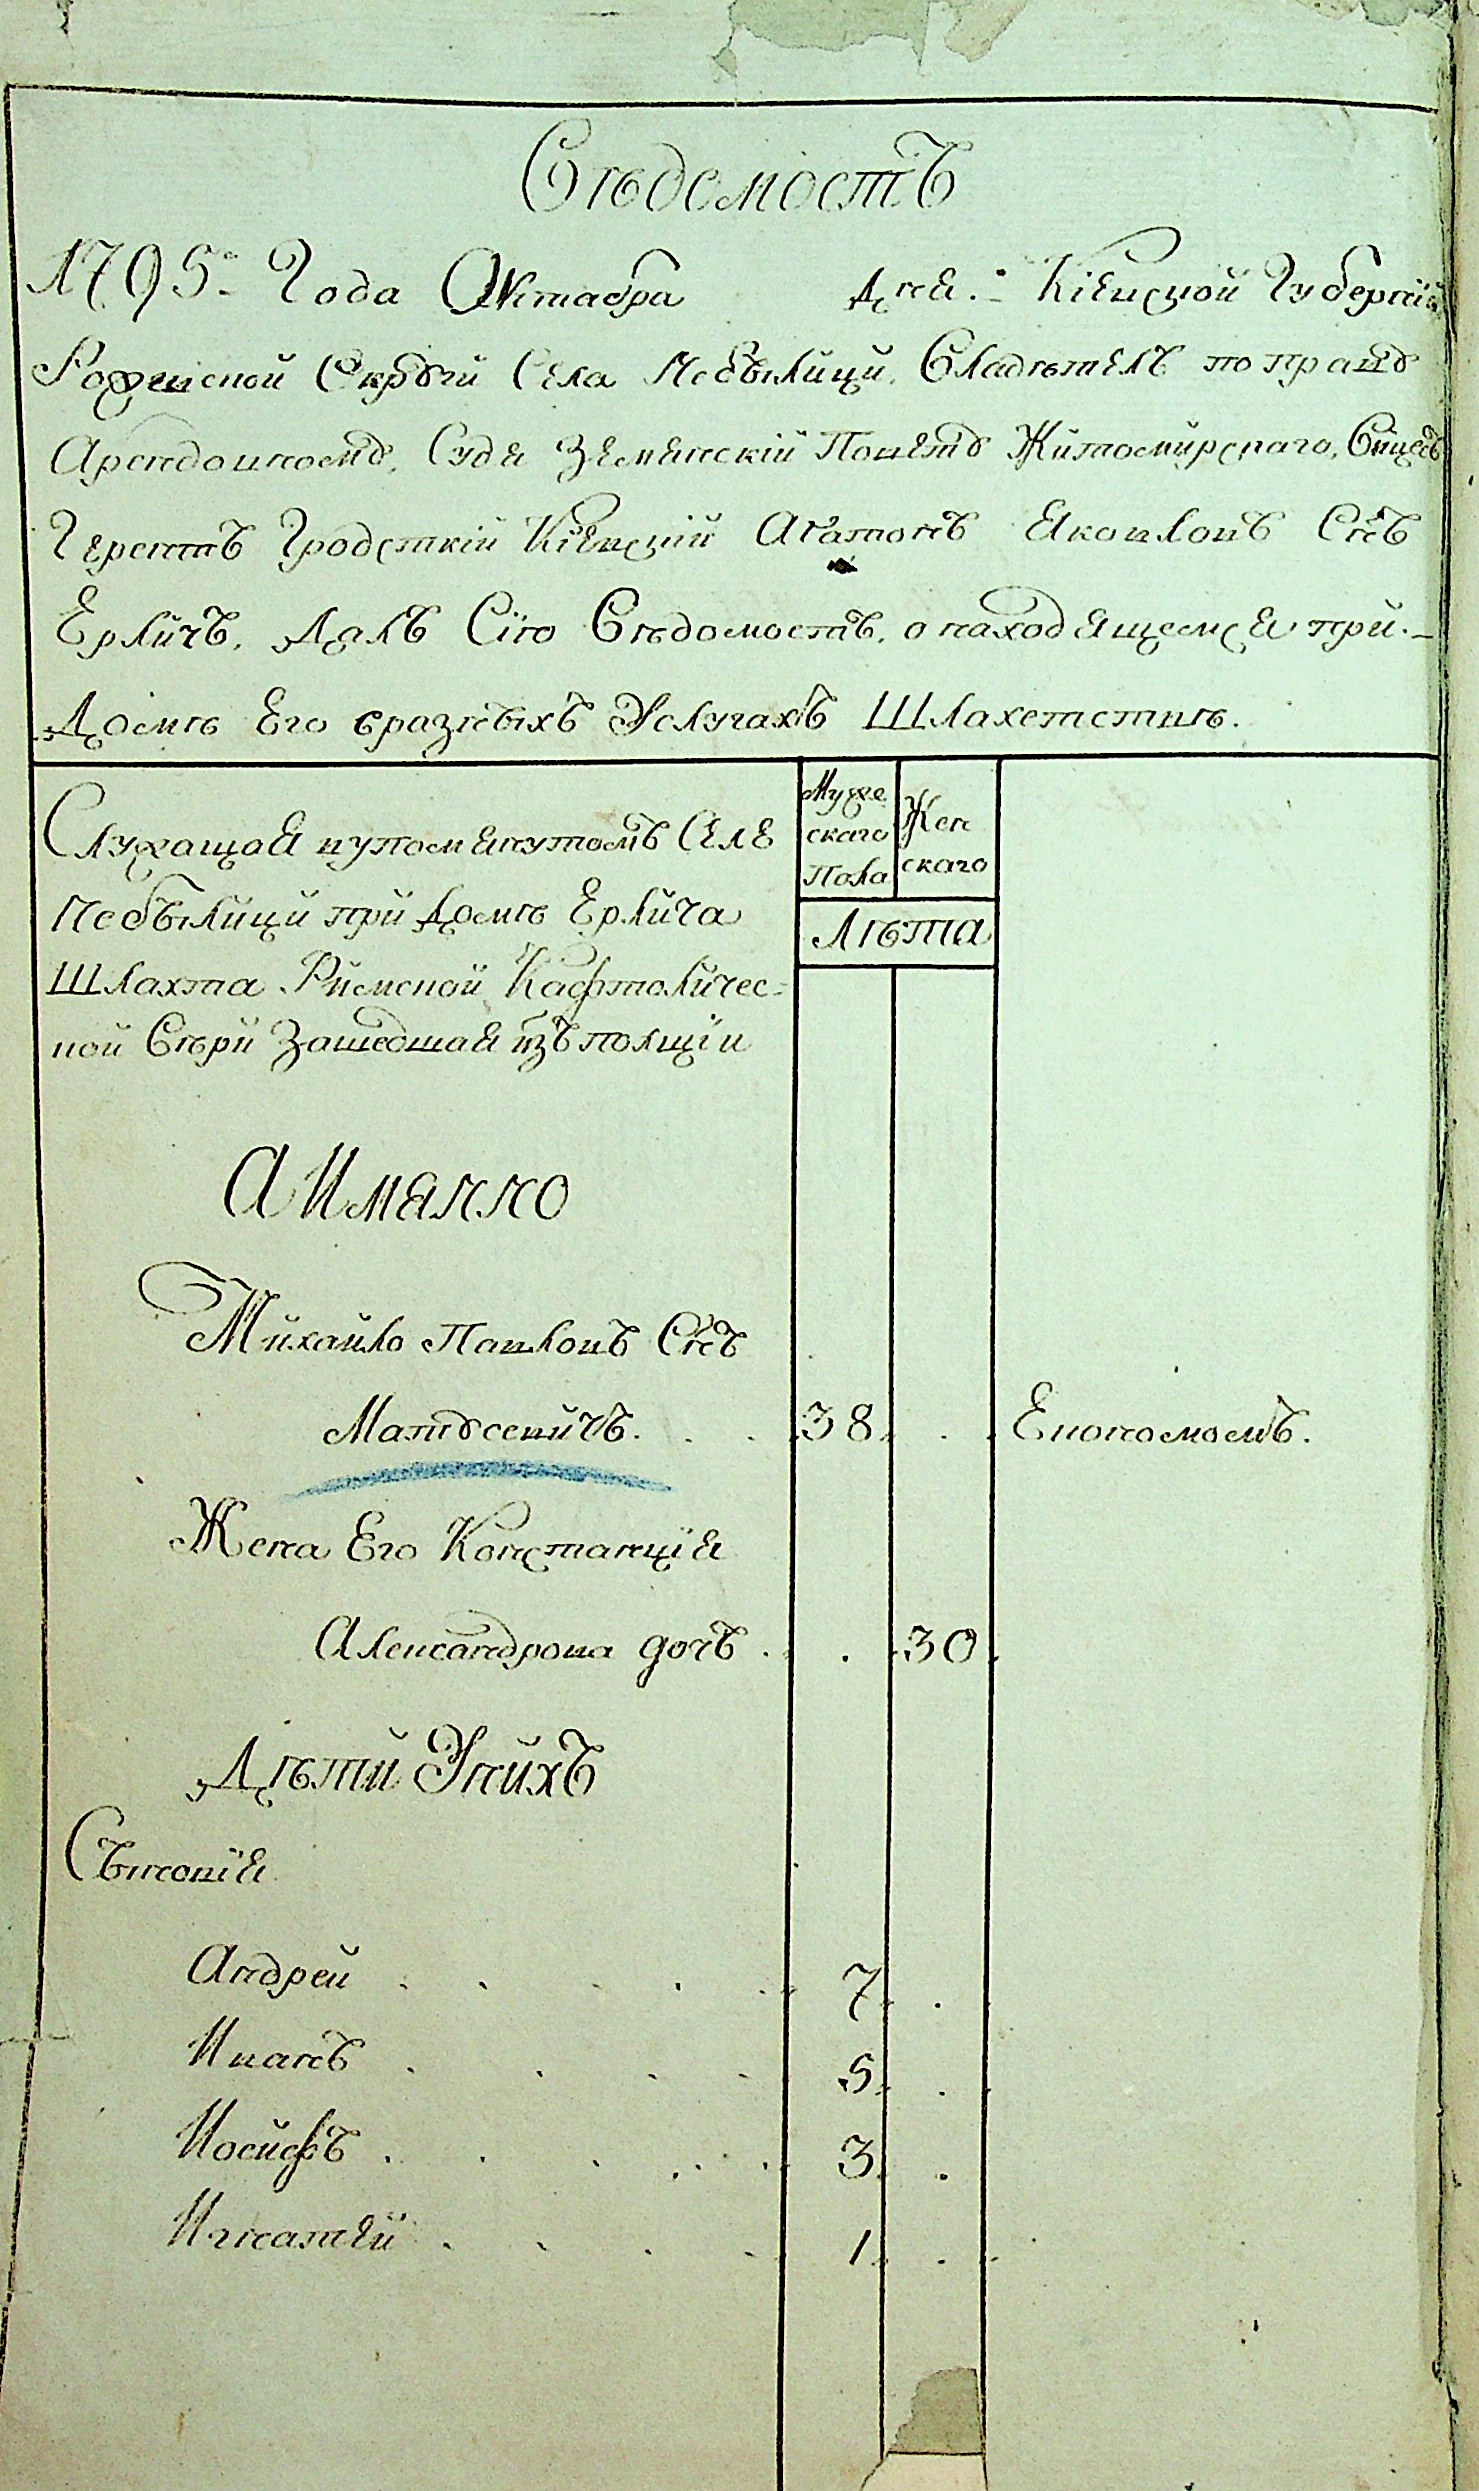 Вѣдомость
1795 Года Октабра дня. Кіевской Губерніи
Рожевской Округи Села Небылици, Владѣтель по праву
Арендовному, Судя Земянскій Повету Житомирскаго, Вице
Герентъ Гродсткій Кіевскій Антонъ Яковловъ Снъ
Ерличъ, Далъ Сію Вѣдомость, о находящемся при
Домѣ Его вразныхъ Услугахъ Шлахетствѣ.
Служащая вупомянутомъ Селе
Небылици при Домѣ Ерлича
Шлахта Римской Кафтоличес-
кой Вѣри Зашедшая изъ полщіи
Муже
скаго
Пола
Жен
скаго
Лѣта
А Имянно
Михайло Павловъ Снъ
38 Економомъ.
Жена Его Констанція
Александрова дочь 30
Дѣти Уныхъ
Сыновія
Андрей 7
Иванъ 5
Иосифъ 3
Игнатій 1